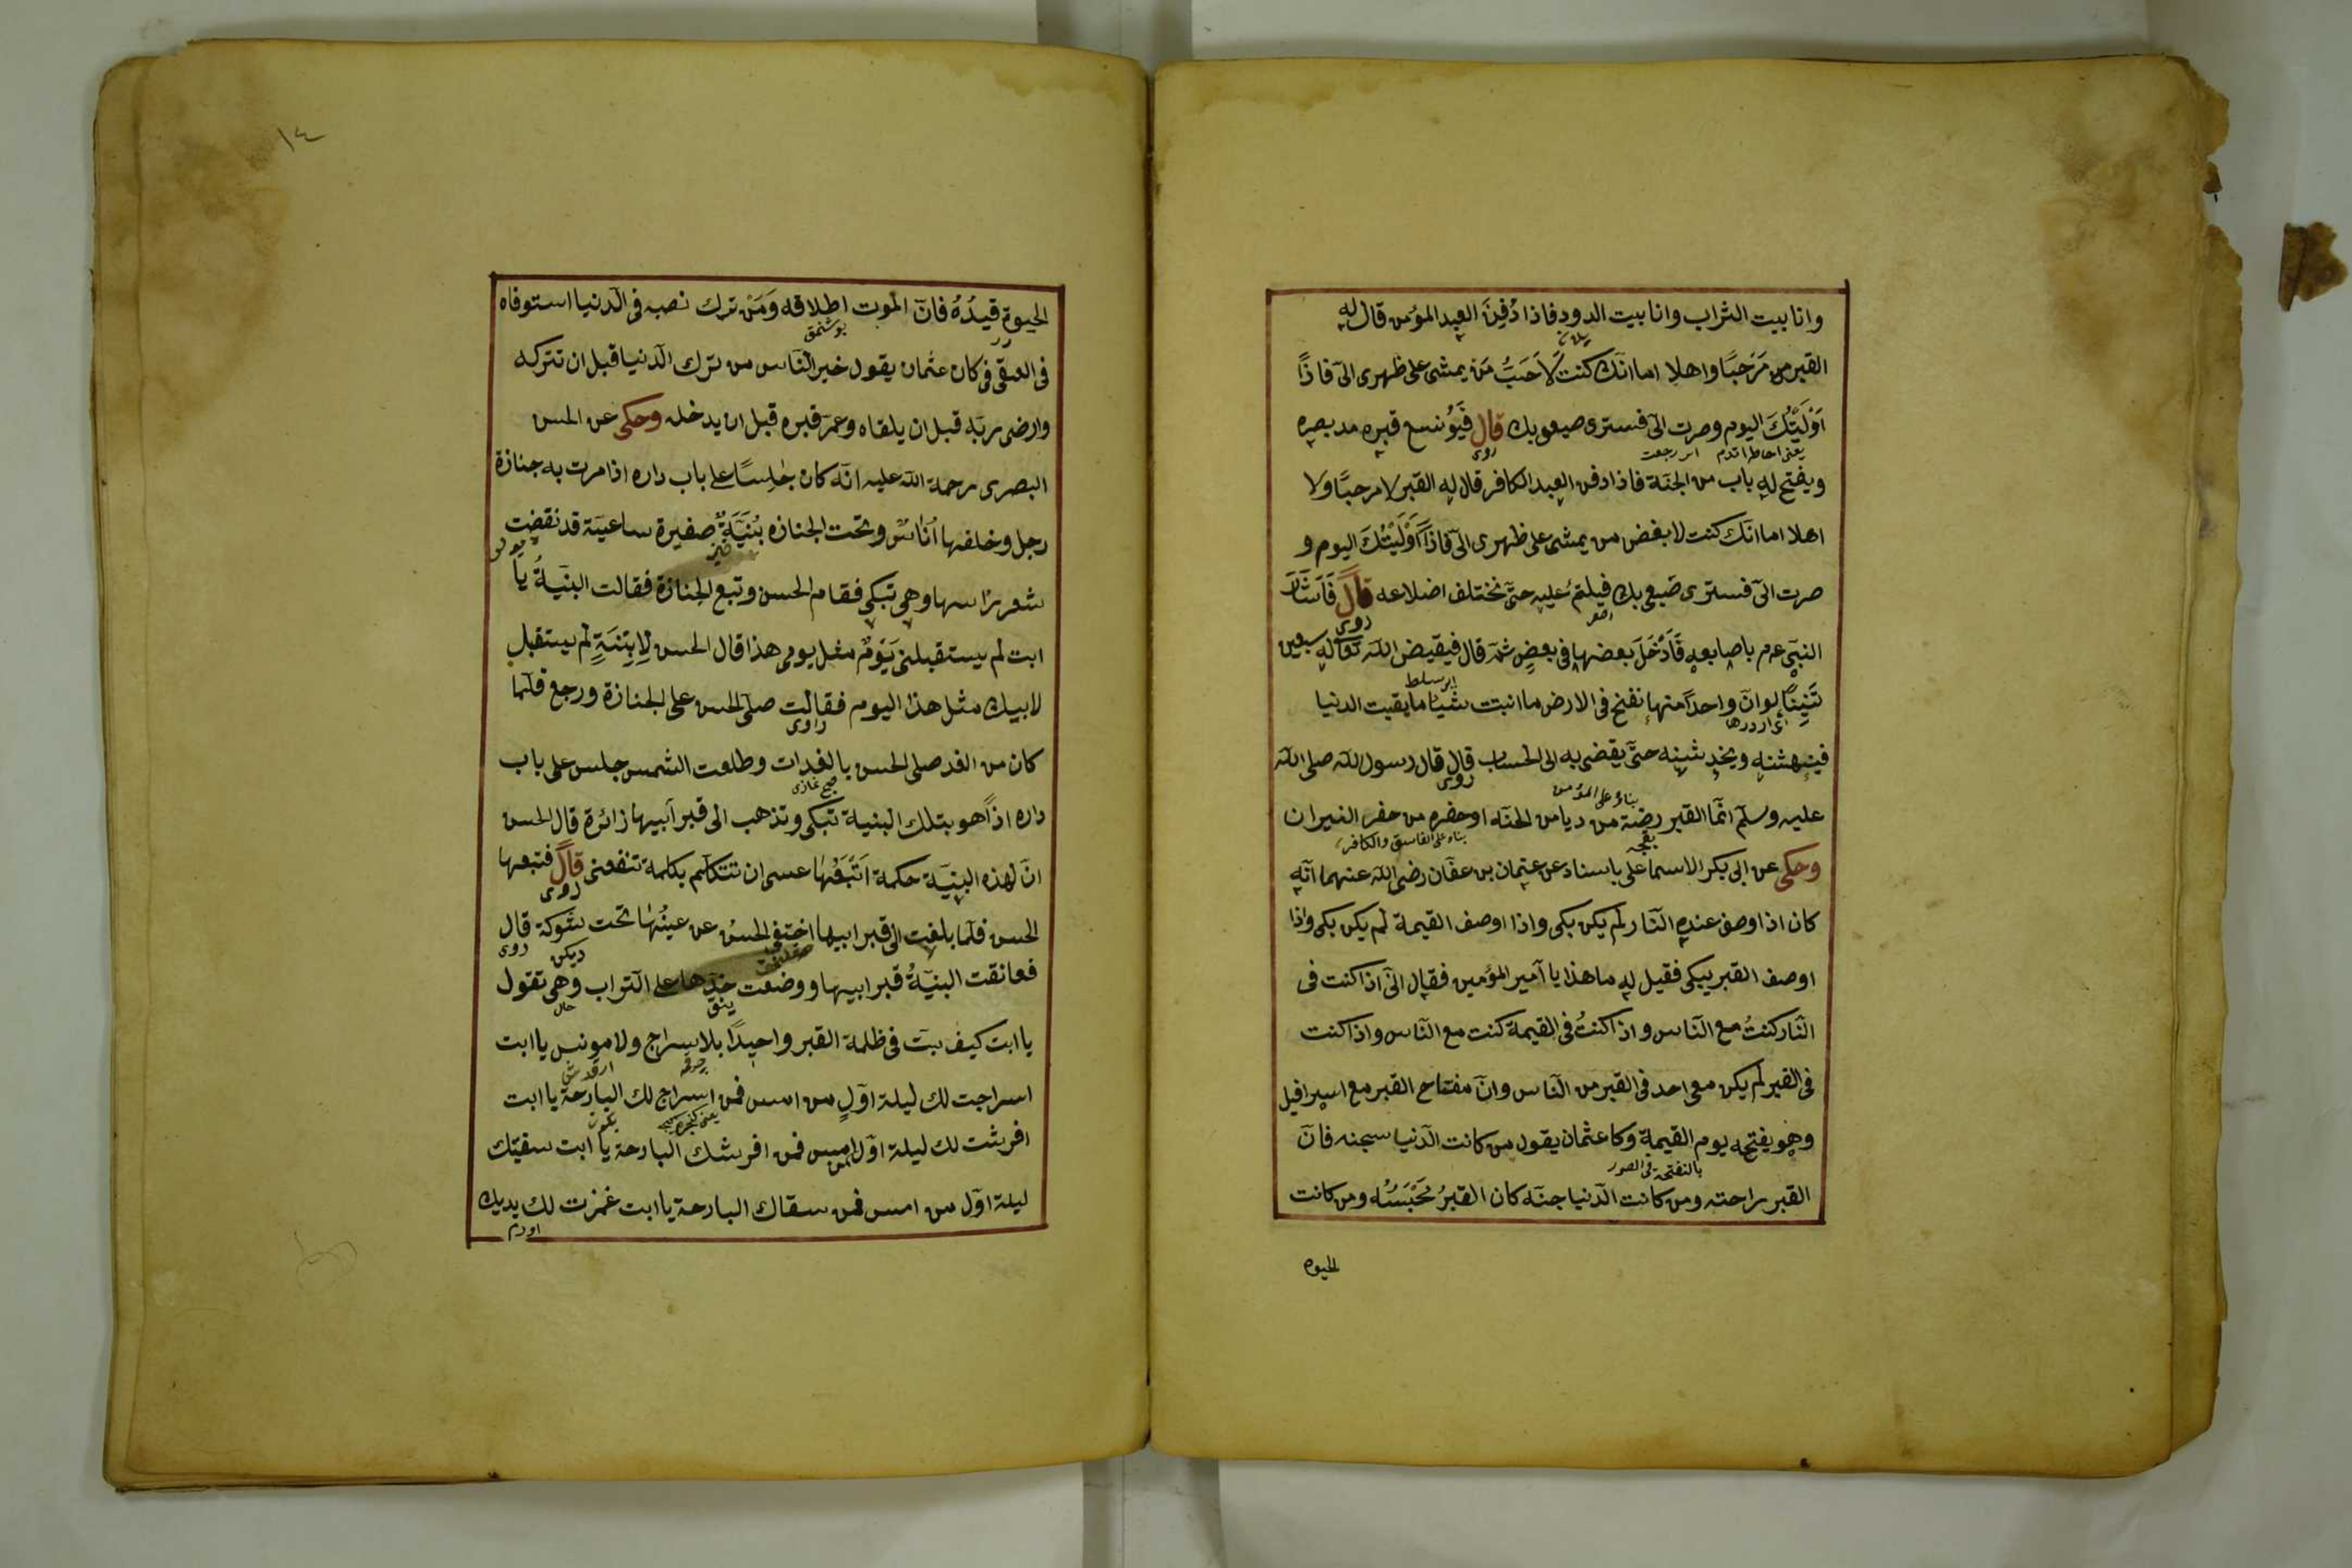 وانا بيت التراب وانا بيت الدود فاذا دُفِنَ العبد المؤمن قال له
القبر من مَرْحَبًا واهلا اما انّك كنت لَاَحَبُّ مَن يمشى على ظهرى الىّ فاذاً
اَوْلَيْتُكَ اليوم وصرت الىّ فسترى صيعى بك قال فَيَوُسَع قبره مد بصره
يعنى احاطه ايدم اى رجعت روى
ويفتح له باب من الجنّة فاذا دفن العبد الكافر قال له القبر لا مرحبًا ولا
اهلا اما انّك كنت لابغض من يمشى على ظهرى الىّ فاذاً اَوْلَيْتُكَ اليوم و
صرت الىّ فسترى صَيعى بك فيلتئم عليه حتّى تختلف اضلاعه قال فَاَشَارَ
روى
النبىّ عم باصابعه فَاَدْخَلَ بعضها فى بعضٍ ثمّ قال فيقيض اللّه تعالى له سبعين
اى سلط
تَنِينًا لو انّ واحداً منها نفخ فى الارض ما انبتت شيئا ما بقيت الدنيا
اى اژدرها
فينهشنه ويخدشنه حتّى يقضى به الى الحساب قال قال رسول اللّه صلى اللّه
روى بناء على المؤمن
عليه وسلّم انّما القبر رضة من رياض الجنّه او حفره من حفر النيران
بغچه بناء على الفاسق والكافر
وحكى عن ابى بكر الاسماعلى باسناد عن عثمان بن عفّان رضى اللّه عنهما انّه
كان اذا وصف عنده النّار لم يكن بكى واذا اوصف القيمة لم يكن بكى واذا
اوصف القبر يبكى فقيل له ما هذا يا امير المؤمين فقال انّى اذا كنت فى
النّار كنتُ مع النّاس واذا كنتُ فى القيمة كنت مع النّاس واذا كنت
فى القبر لم يكن معى احد فى القبر من النّاس وانّ مفتاح القبر مع اسرافيل
وهو يفتحه يوم القيمة وكا عثمان يقول من كانت الدّنيا سجنه فانّ
بالنفخة فى الصور
القبر راحته ومن كانت الدّنيا جنّه كان القبرُ مَحْبَسُه ومن كانت
الحيوة
١٤
الحيوة قيدُهُ فانّ الموت اطلاقه وَمَنْ ترك نصبه فى الدّنيا استوفاه
بوشنمق
فى العقى فى كان عثمان يقول خير النّاس من ترك الدّنيا قبل ان تتركه
وارضى ربّه قبل ان يلقاه وعمّر قبره قبل ان يدخله وحكى عن الحسن
البصرى رحمة اللّه عليه انّه كان جٰلِسًا على باب داره اذا مرت به جنازة
رجل وخلفها اُنَاسٌ وتحت الجنازه بُنَيَّةٌ صغيرة ساعيّة قد نقضت
قيز
شعر رٱسها وهى تبكى فقام الحسن وتبع الجنازة فقالت البنيّةُ يا
ابت لم يستقبلنى يَوْمٌ مثل يومى هذا قال الحسن لِابِنَيّةٍ لم يستقبل
لابيك مثل هذا اليوم فقالت صلّى الحسن على الجنازة ورجع فلمّا
راوى
كان من الغد صلى الحسن بالغدات وطلعت الشمس جلس على باب
صبح نمازى
داره اذاً هو بتلك البنية تبكى وتذهب الى قبر ابيها زائرة قال الحسن
انّ لهذه البنيّة حكمة اَتّبَعُهٰا عسى ان تتكلّم بكلمة تنفعنى قال فتبعها
روى
الحسن فلمّا بلغت الى قبر ابيها اختفى الحسنُ عن عينُهٰا تحت شوكة قال
ديكن روى
فعانقت البنيّةُ قبر ابيها ووضعت خدّها على التّراب وهى تقول
حال
يا ابت كيف بتّ فى ظلمة القبر واحيدًا بلا سراج ولا مونس يا ابت
اسرجت لك ليلة اوّلٍ من امس فمن اسراج لك البارحة يا ابت
افرشت لك ليلة اوّل امس فمن افرشك البارحة يا ابت سقيّتك
ليلة اوّل من امس فمن سقاك البارحة يا ابت غمزت لك يديك